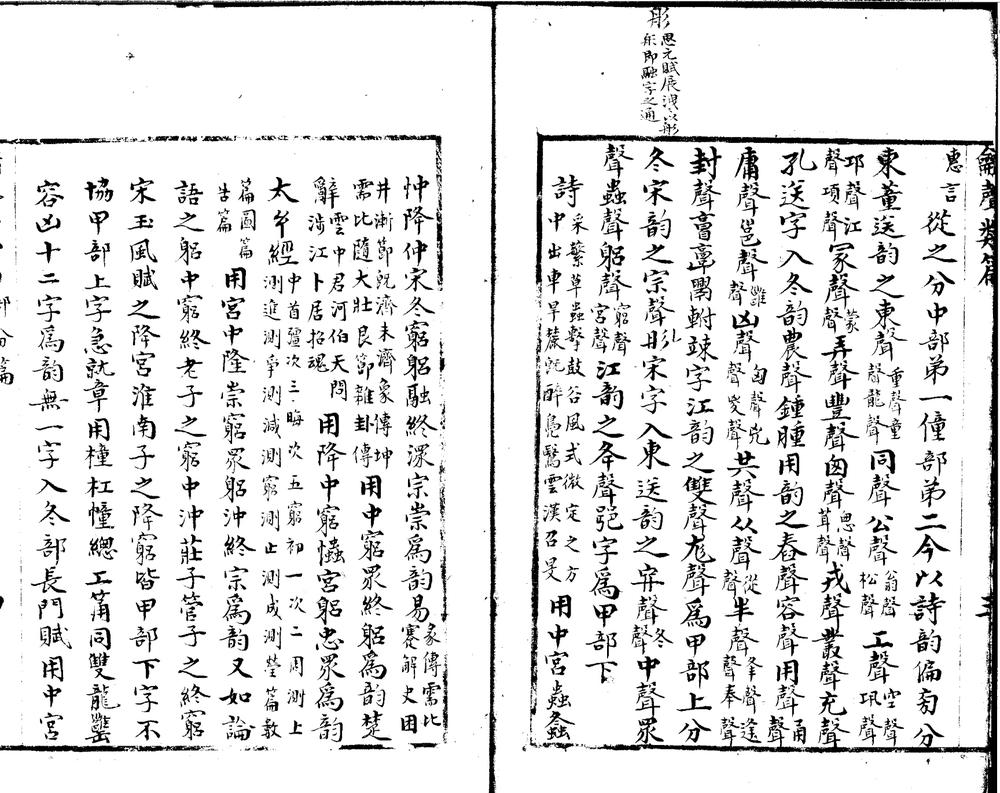 彤
思元賦展洩洩以彤
彤即融字之通
惠言從之分中部弟一僮部弟二今以詩韵偏旁分
東董送韵之東聲重聲童聲龍聲同聲公聲翁聲松聲工聲空聲巩聲
邛聲江聲項聲冡聲蒙聲弄聲豐聲囪聲悤聲茸聲戎聲叢聲充聲
孔送字入冬韵農聲鍾腫用韵之舂聲容聲用聲甬聲
庸聲邕聲雝聲凶聲匈聲兇聲㚇聲共聲从聲從聲丰聲夆聲逢聲奉聲
封聲亯𩫏𩰲軵竦字江韵之雙聲尨聲爲甲部上分
冬宋韵之宗聲彤宋字入東送韵之宑聲冬聲中聲眾
聲蟲聲躬聲窮聲宮聲江韵之夅聲巷字爲甲部下
詩采蘩草蟲擊鼓谷風式微定之方中出車旱麓既醉鳧鷖雲漢召旻用中宮蟲螽
忡降仲宋冬窮躬融終深宗崇爲韵易彖傳需比蹇解史困
井漸節旣濟未濟象傳坤需比隨大壯艮節雜卦傳用中窮眾終躬爲韵楚
辭雲中君河伯天問涉江卜居招魂用降中窮忡宮躬忠眾爲韵
太玄經中首彊次三晦次五窮初一次二周測上測進測爭測減測窮測止測成測塋篇敎
篇圖篇告篇用宮中隆崇窮眾躬沖終宗爲韵又如論
語之躬中窮終老子之窮中沖莊子管子之終窮
宋玉風賦之降宮淮南子之降窮皆甲部下字不
協甲部上字急就章用橦杠幢總工蒲同雙龍甖
容凶十二字爲韵無一字入冬部長門賦用中宮